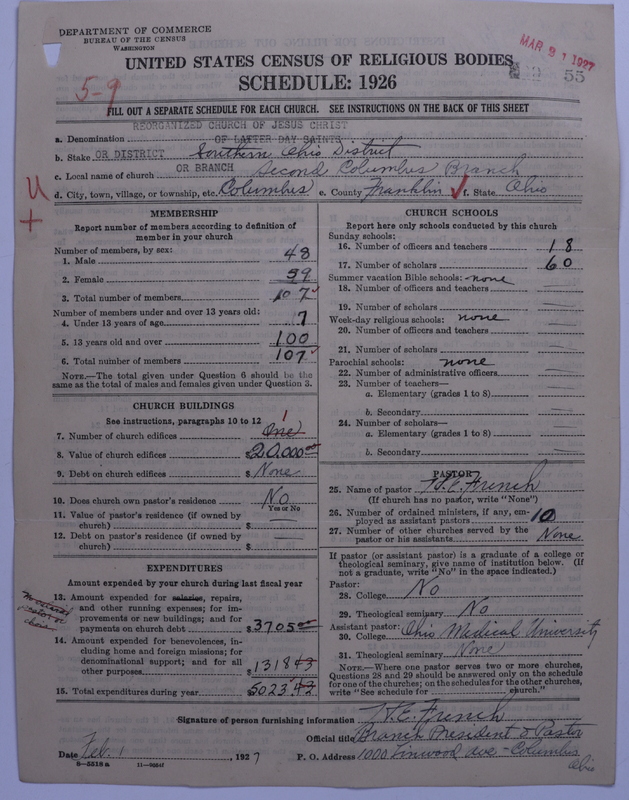 DEPARTMENT OF COMMERCE
BUREAU OF THE CENSUS
WASHINGTON
MAR 31 1927
UNITED STATES CENSUS OF RELIGIOUS BODIES
SCHEDULE: 1926
55
5-9
FILL OUT A SEPARATE SCHEDULE FOR EACH CHURCH. SEE INSTRUCTIONS ON THE BACK OF THIS SHEET
REORGANIZED CHURCH OF JESUS CHRIST
a. Denomination OF LATTER DAY SAINTS
b. Stake OR DISTRICT Southern Ohio District
c. Local name of church OR BRANCH Second Columbus Branch
d. City, town, village, or township, etc. Columbus e. County Franklin f. State Ohio
U
+
MEMBERSHIP
Report number of members according to definition of
member in your church
Number of members, by sex:
1. Male 48
2. Female 59
3. Total number of members 107
Number of members under and over 13 years old:
4. Under 13 years of age 7
5. 13 years old and over 100
6. Total number of members 107
NOTE.—The total given under Question 6 should be the
same as the total of males and females given under Question 3.
CHURCH BUILDINGS
See instructions, paragraphs 10 to 12
1
7. Number of church edifices One
8. Value of church edifices $20,000.00
9. Debt on church edifices $ None
10. Does church own pastor's residence No
Yes or No
11. Value of pastor's residence (if owned by
church) $
12. Debt on pastor's residence (if owned by
church) $
EXPENDITURES
Amount expended by your church during last fiscal year
13. Amount expended for salaries, repairs,
and other running expenses; for im-
provements or new buildings; and for
payments on church debt $3705.00
14. Amount expended for benevolences, in-
cluding home and foreign missions; for
denominational support; and for all
other purposes $1318 43
15. Total expenditures during year $5023.43
CHURCH SCHOOLS
Report here only schools conducted by this church
Sunday schools:
16. Number of officers and teachers 18
17. Number of scholars 60
Summer vacation Bible schools: none
18. Number of officers and teachers
19. Number of scholars
Week-day religious schools: none
20. Number of officers and teachers
21. Number of scholars
Parochial schools: none
22. Number of administrative officers
23. Number of teachers—
a. Elementary (grades 1 to 8)
b. Secondary
24. Number of scholars—
a. Elementary (grades 1 to 8)
b. Secondary
PASTOR
25. Name of pastor H.E. French
(If church has no pastor, write "None")
26. Number of ordained ministers, if any, em-
ployed as assistant pastors 10
27. Number of other churches served by the
pastor or his assistants None
If pastor (or assistant pastor) is a graduate of a college or
theological seminary, give name of institution below. (If
not a graduate, write "No" in the space indicated.)
Pastor:
28. College No
29. Theological seminary No
Assistant pastor:
30. College Ohio Medical University
31. Theological seminary None
NOTE.—Where one pastor serves two or more churches,
Questions 28 and 29 should be answered only on the schedule
for one of the churches; on the schedules for the other churches,
write "See schedule for church."
Signature of person furnishing information H.E. French
Official title Branch President & Pastor
Date Feb. 1 1927 P. O. Address 1000 Linwood Ave - Columbus
Ohio
8-5518a 11-00547